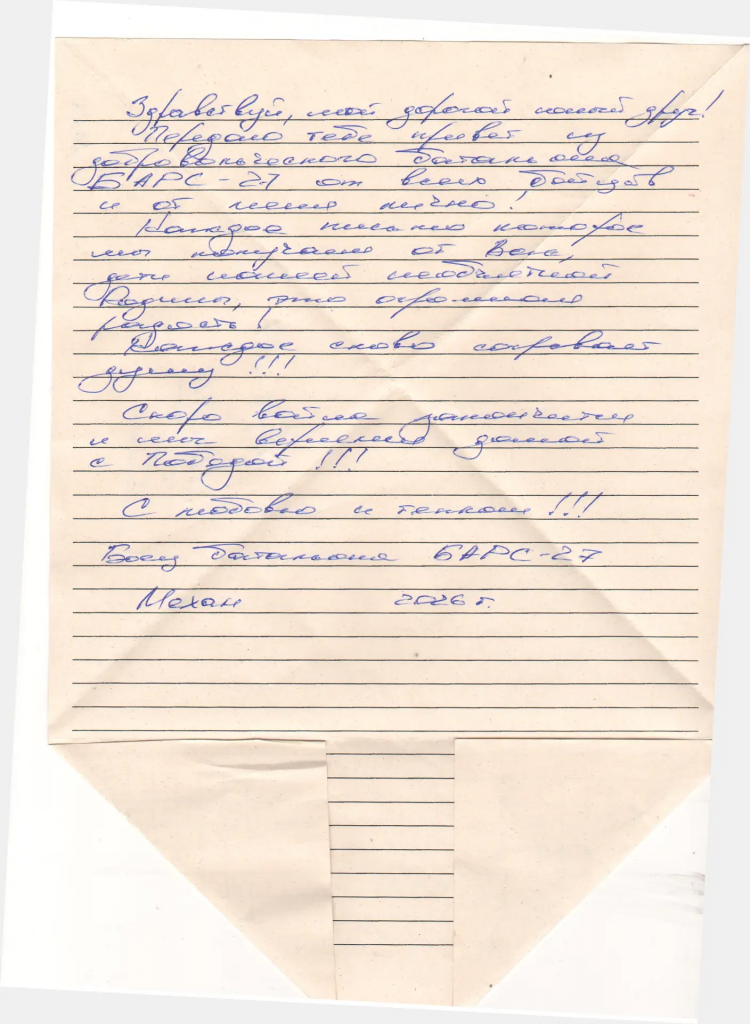 Здравствуй, мой дорогой юный друг!
Передаю тебе привет из
добровольческого батальона
БАРС-27 от всех бойцов
и от меня лично!
Каждое письмо которое
мы получаем от Вас,
дети нашей необъятной
Родины, это огромная
радость!
Каждое слово согревает
душу!!!
Скоро война закончится
и мы вернёмся домой
с Победой!!!
С любовью и теплом!!!
Боец батальона БАРС-27
Механ 2026 г.